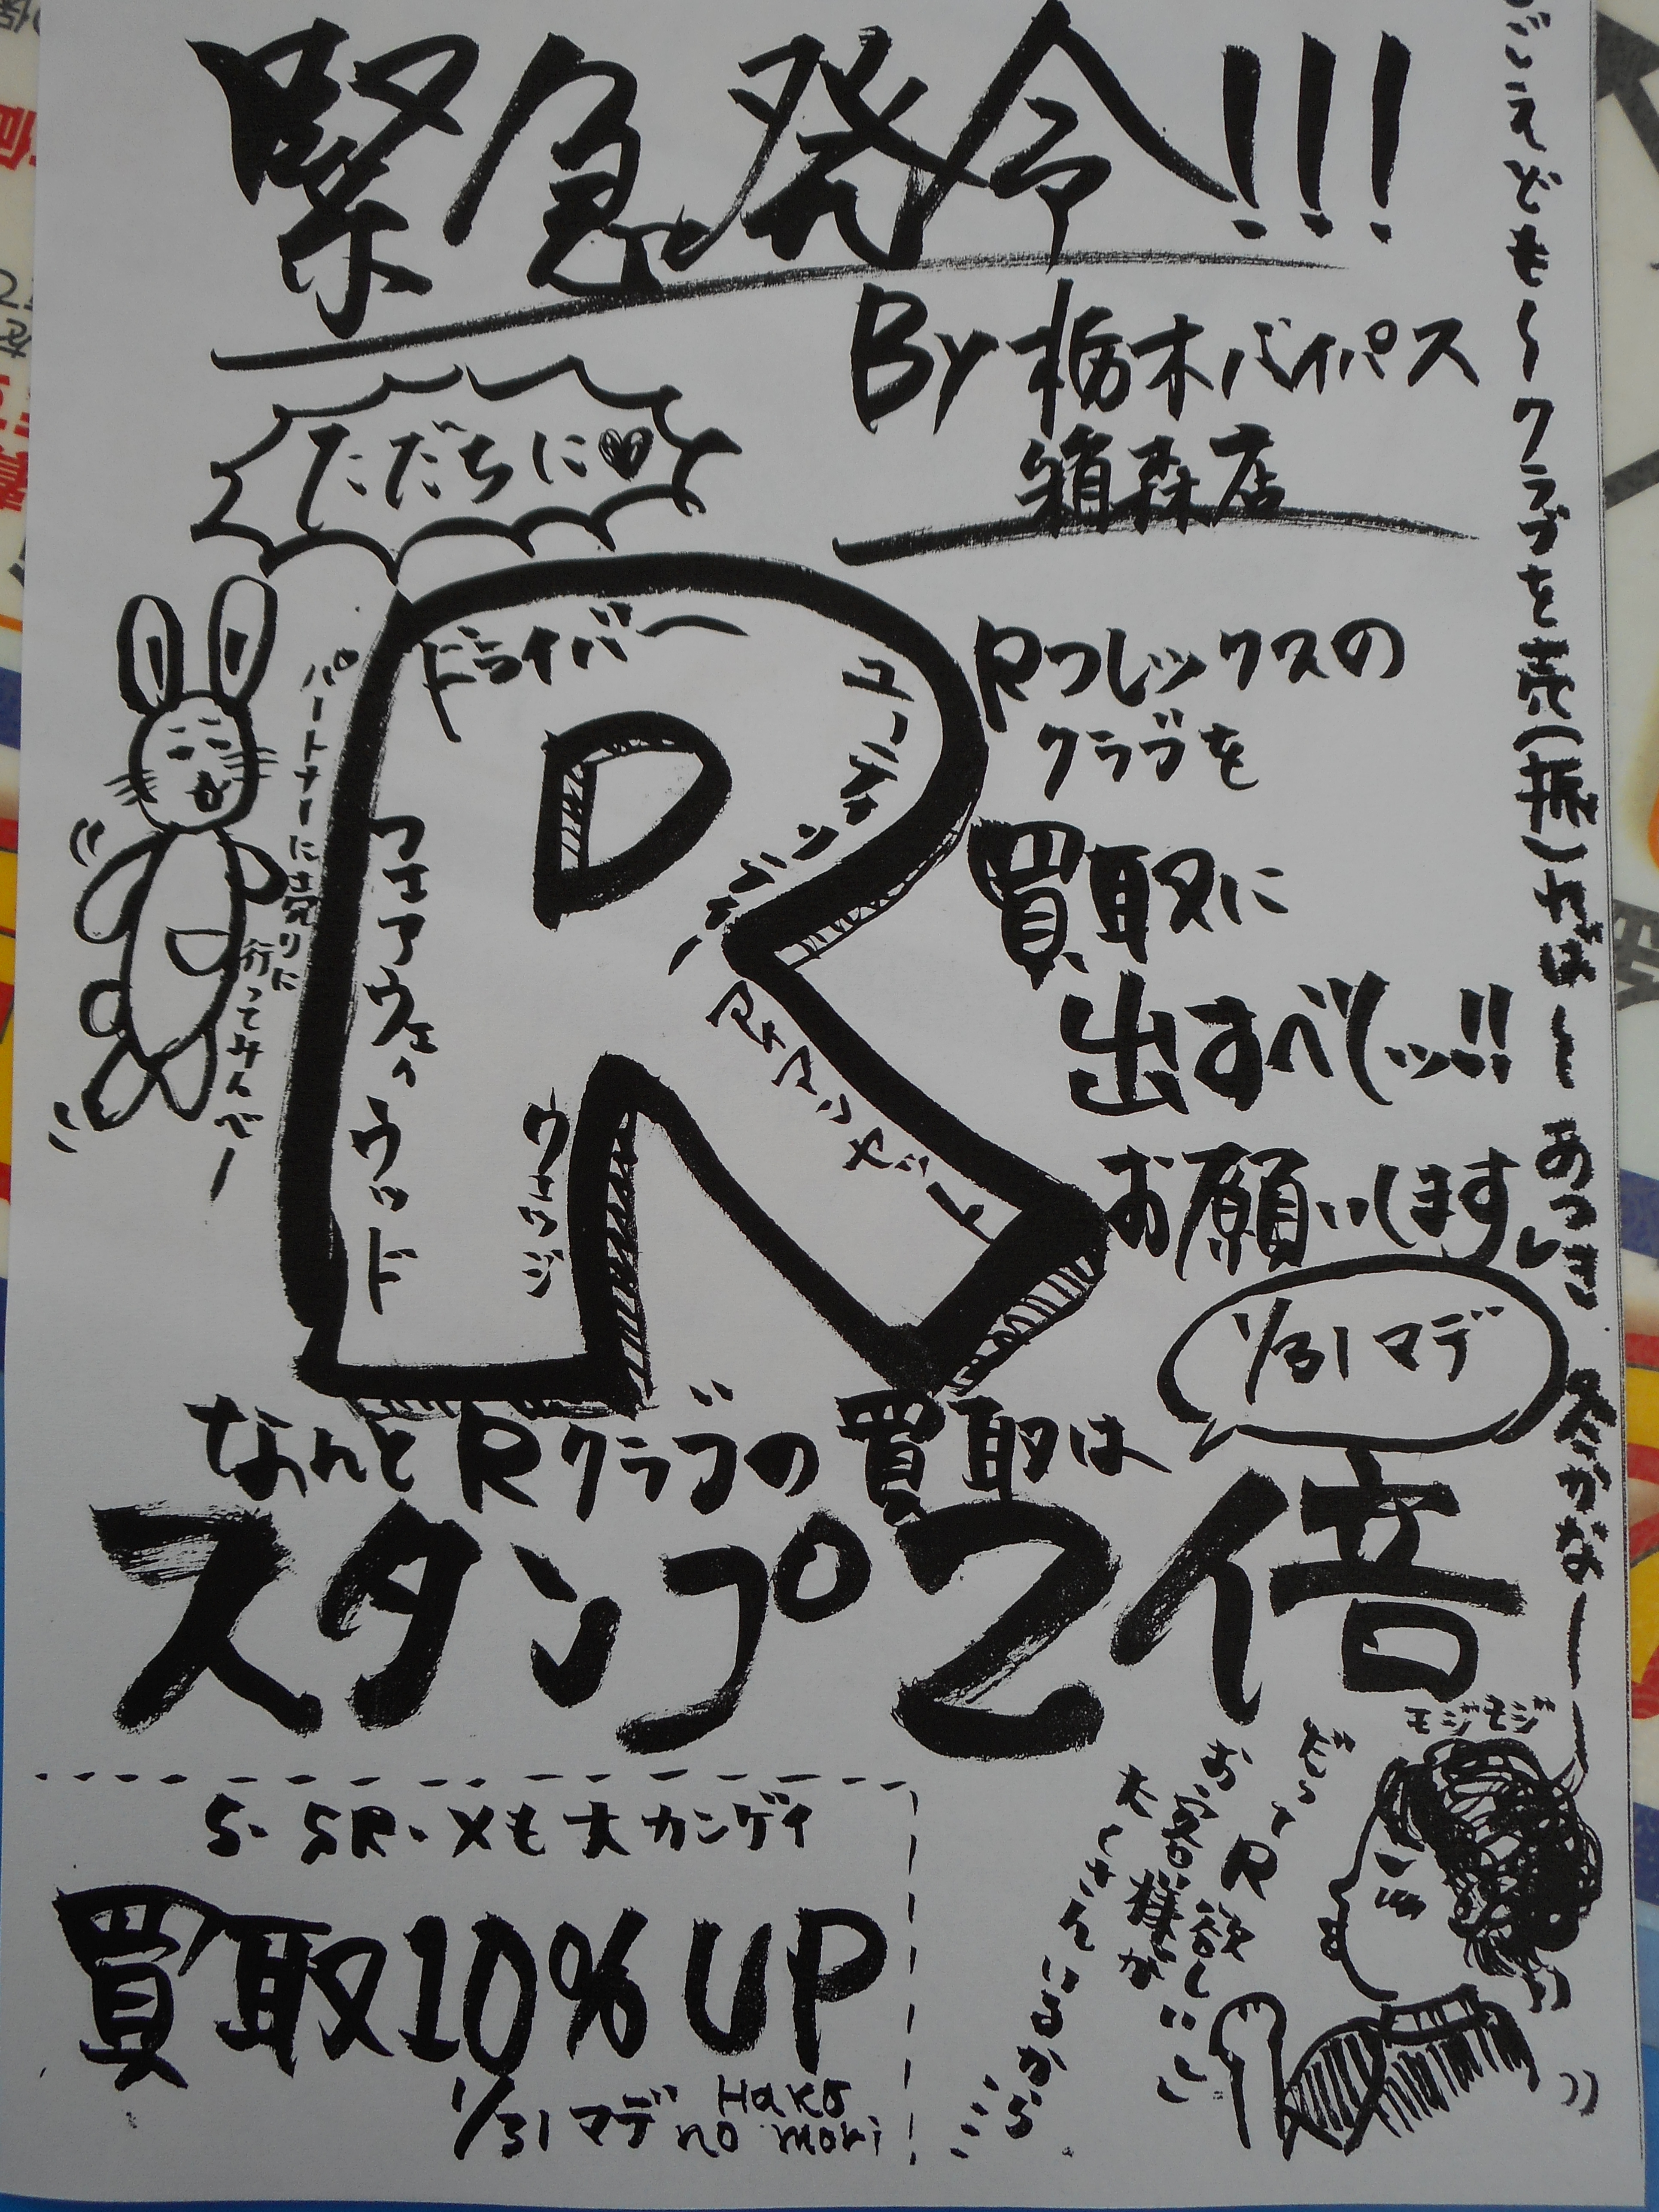 緊急発令!!!
By 栃木バイパス
箱森店
ただちに♥
ドライバー
ユーティリティー
フェアウェイウッド
ウェッジ
Rフレックスの
クラブを
買取に
出すべしッ!!
お願いします
1/31マデ
パートナーに売りに
行ってみんべー
なんとRクラブの買取は
スタンプ2倍
S・SR・Xも大カンゲイ
買取10%UP
1/31マデ
Hako
no mori
モジモジ
だってR
お客様が
たくさんいるから
クラブを売(振)れば〜